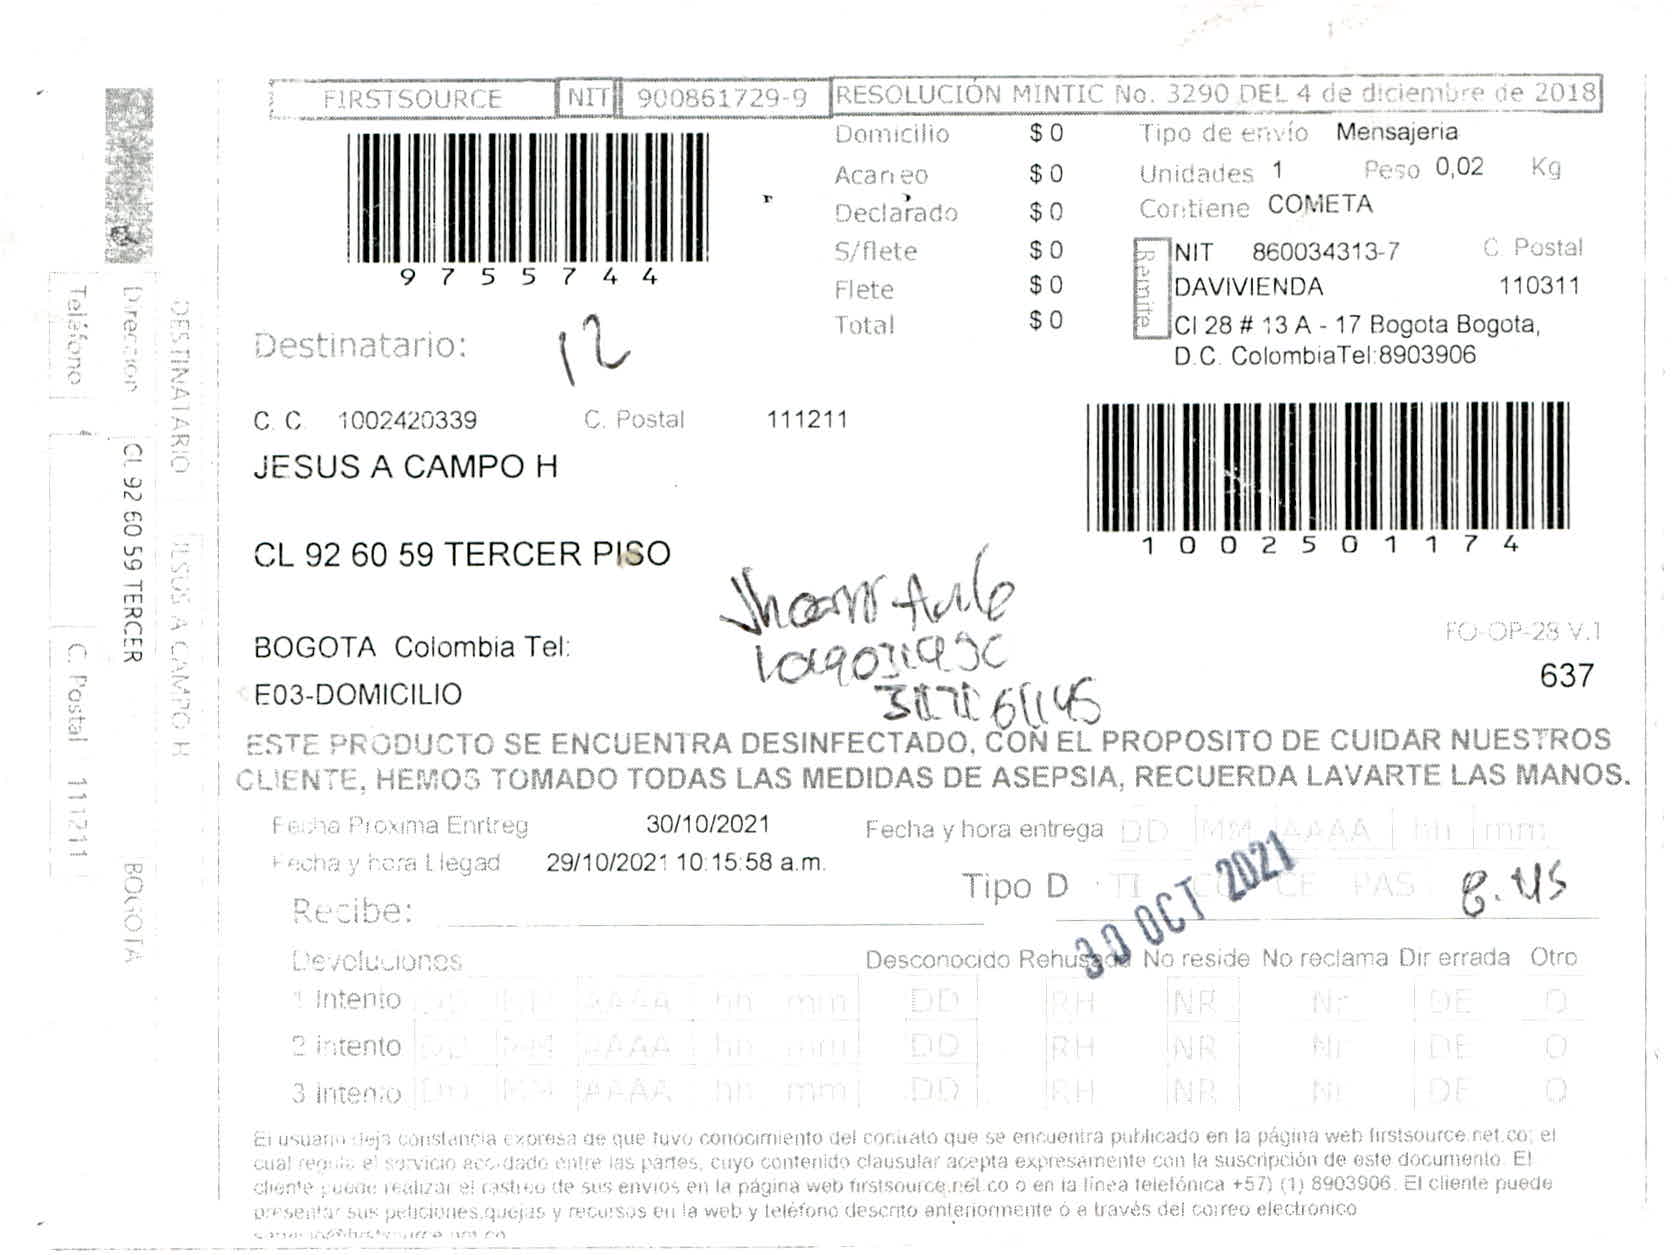 FIRSTSOURCE NIT 900861729-9 RESOLUCIÓN MINTIC No. 3290 DEL 4 de diciembre de 2018
9755744
Domicilio $ 0
Acarreo $ 0
Declarado $ 0
S/flete $ 0
Flete $ 0
Total $ 0
Tipo de envío Mensajeria
Unidades 1 Peso 0,02 Kg
Contiene COMETA
Remite
NIT 860034313-7 C. Postal
DAVIVIENDA 110311
Cl 28 # 13 A - 17 Bogota Bogota,
D.C. ColombiaTel:8903906
Destinatario: 12
C. C. 1002420339 C. Postal 111211
JESUS A CAMPO H
1002501174
CL 92 60 59 TERCER PISO
BOGOTA Colombia Tel:
E03-DOMICILIO
FO-OP-28 V.1
637
ESTE PRODUCTO SE ENCUENTRA DESINFECTADO, CON EL PROPOSITO DE CUIDAR NUESTROS
CLIENTE, HEMOS TOMADO TODAS LAS MEDIDAS DE ASEPSIA, RECUERDA LAVARTE LAS MANOS.
Fecha Proxima Entreg 30/10/2021
Fecha y hora entrega DD MM AAAA hh mm
Fecha y hora Llegad 29/10/2021 10:15:58 a.m.
Tipo D TI CC CE PAS 8:45
30 OCT 2021
Recibe:
Devoluciones Desconocido Rehusado No reside No reclama Dir errada Otro
1 Intento DD MM AAAA hh mm DD RH NR Nr DE O
2 intento DD MM AAAA hh mm DD RH NR Nr DE O
3 Intento DD MM AAAA hh mm DD RH NR Nr DE O
El usuario deja constancia expresa de que tuvo conocimiento del contrato que se encuentra publicado en la página web firstsource.net.co; el
cual regula el servicio acordado entre las partes, cuyo contenido clausular acepta expresamente con la suscripción de este documento. El
cliente puede realizar el rastreo de sus envios en la página web firstsource.net.co o en la línea telefónica +57) (1) 8903906. El cliente puede
presentar sus peticiones,quejas y recursos en la web y teléfono descrito anteriormente o a través del correo electronico
DESTINATARIO JESUS A CAMPO H
Direccion CL 92 60 59 TERCER BOGOTA
Teléfono C. Postal 111211